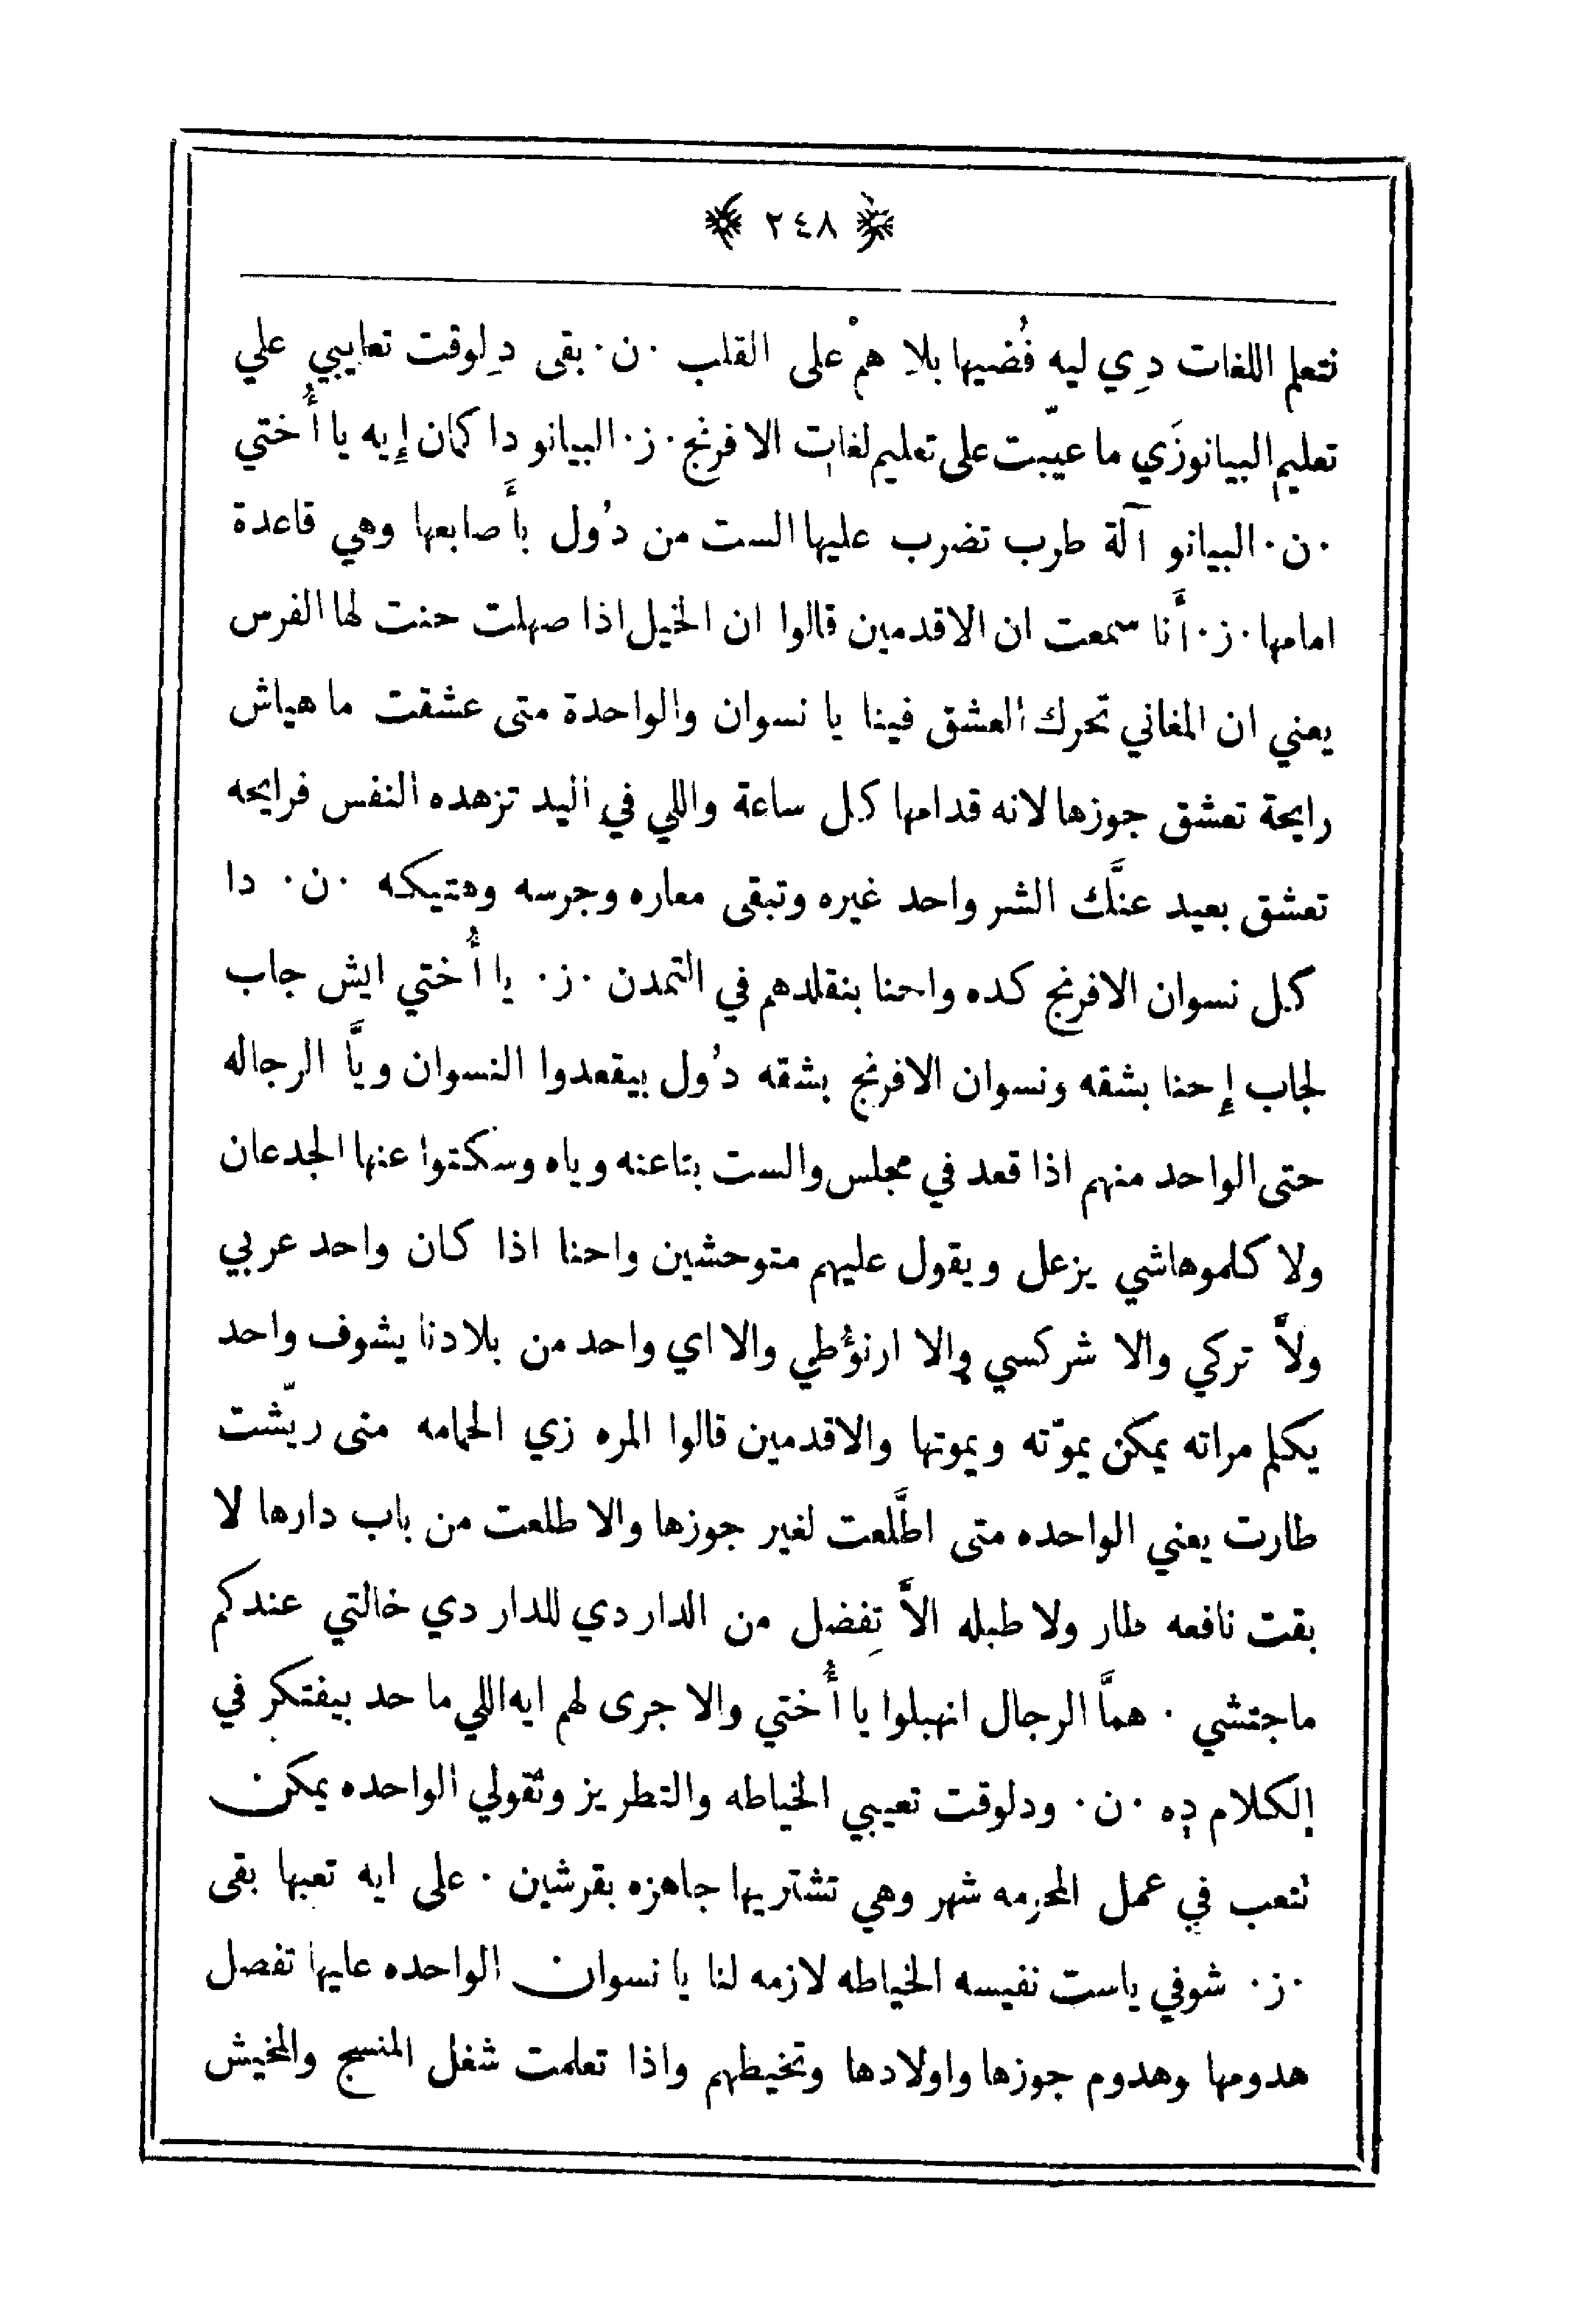 ﴿ ٢٤٨ ﴾
نتعلم اللغات دِي ليه فُضيها بلاِ همْ على القلب ٠ن٠ بقى دِلوقت تعايبي علي
تعليم البيانوزَي ما عيّبت على تعليم لغات الافرنج ٠ز٠ البيانو دا كمان إيه يا أُختي
٠ن٠ البيانو آلة طرب تضرب عليها الست من دُول بأَصابعها وهي قاعدة
امامها ٠ز٠ أَنا سمعت ان الاقدمين قالوا ان الخيل اذا صهلت حنت لها الفرس
يعني ان المغاني تحرك العشق فينا يا نسوان والواحدة متى عشقت ما هياش
رايحة تعشق جوزها لانه قدامها كل ساعة واللي في اليد تزهده النفس فرايحه
تعشق بعيد عنَّك الشر واحد غيره وتبقى معاره وجرسه وهتيكه ٠ن٠ دا
كل نسوان الافرنج كده واحنا بنقلدهم في التمدن ٠ز٠ يا أُختي ايش جاب
لجاب إحنا بشقه ونسوان الافرنج بشقه دُول بيقعدوا النسوان ويَّا الرجاله
حتى الواحد منهم اذا قعد في مجلس والست بتاعنه وياه وسكتوا عنها الجدعان
ولا كلموهاشي يزعل ويقول عليهم متوحشين واحنا اذا كان واحد عربي
ولاَّ تركي والا شركسي والا ارنؤُطي والا اي واحد من بلادنا يشوف واحد
يكلم مراته يمكن يموّته ويموتها والاقدمين قالوا المره زي الحمامه متى ريّشت
طارت يعني الواحده متى اطَّلعت لغير جوزها والا طلعت من باب دارها لا
بقت نافعه طار ولا طبله الاَّ تِفضل من الدار دي للدار دي خالتي عندكم
ماجتشي ٠ همَّا الرجال انهبلوا يا أُختي والا جرى لهم ايه اللي ما حد بيفتكر في
إلكلام ده ٠ن٠ ودلوقت تعيبي الخياطه والتطريز وتقولي الواحده يمكن
نتعب في عمل المحرمه شهر وهي تشتريها جاهزه بقرشين ٠ على ايه تعبها بقى
٠ز٠ شوفي ياست نفيسه الخياطه لازمه لنا يا نسوان الواحده عليها تفصل
هدومها وهدوم جوزها واولادها وتخيطهم واذا تعلمت شغل المنسج والمخيش